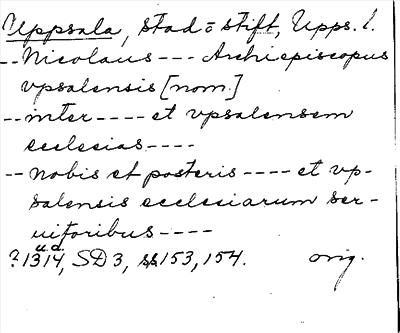 Uppsala, stad = stift, Upps. l.
-- Nicolaus --- Archiepiscopus
vpsalensis [nom.]
-- inter ---- et vpsalensem
ecclesias ----
-- nobis et posteris ---- et vp-
salensis ecclesiarum ser-
uitoribus ----
u.d.
? 1314, SD 3, ss 153, 154. orig.